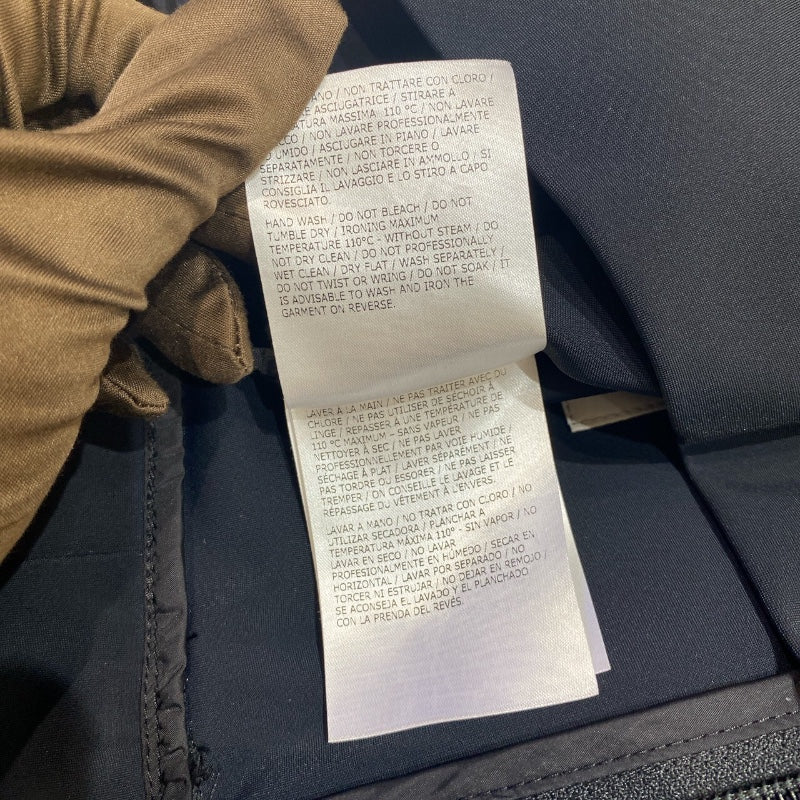 ANO / NON TRATTARE CON CLORO /
ASCIUGATRICE / STIRARE A
MASSIMA 110 °C / NON LAVARE
/ NON LAVARE PROFESSIONALMENTE
UMIDO / ASCIUGARE IN PIANO / LAVARE
SEPARATAMENTE / NON TORCERE O
STRIZZARE / NON LASCIARE IN AMMOLLO / SI
CONSIGLIA IL LAVAGGIO E LO STIRO A CAPO
ROVESCIATO.
HAND WASH / DO NOT BLEACH / DO NOT
TUMBLE DRY / IRONING MAXIMUM
TEMPERATURE 110°C - WITHOUT STEAM / DO
NOT DRY CLEAN / DO NOT PROFESSIONALLY
WET CLEAN / DRY FLAT / WASH SEPARATELY /
DO NOT TWIST OR WRING / DO NOT SOAK / IT
IS ADVISABLE TO WASH AND IRON THE
GARMENT ON REVERSE.
LAVER À LA MAIN / NE PAS TRAITER AVEC DU
CHLORE / NE PAS UTILISER DE SÉCHOIR À
LINGE / REPASSER À UNE TEMPÉRATURE DE
110 °C MAXIMUM – SANS VAPEUR / NE PAS
NETTOYER À SEC / NE PAS LAVER
PROFESSIONNELLEMENT PAR VOIE HUMIDE /
SÉCHAGE À PLAT / LAVER SÉPARÉMENT / NE
PAS TORDRE OU ESSORER / NE PAS LAISSER
TREMPER / ON CONSEILLE LE LAVAGE ET LE
REPASSAGE DU VÊTEMENT À L'ENVERS.
LAVAR A MANO / NO TRATAR CON CLORO / NO
UTILIZAR SECADORA / PLANCHAR A
TEMPERATURA MÁXIMA 110° - SIN VAPOR / NO
LAVAR EN SECO / NO LAVAR
PROFESIONALMENTE EN HÚMEDO / SECAR EN
HORIZONTAL / LAVAR POR SEPARADO / NO
TORCER NI ESTRUJAR / NO DEJAR EN REMOJO /
SE ACONSEJA EL LAVADO Y EL PLANCHADO
CON LA PRENDA DEL REVÉS.